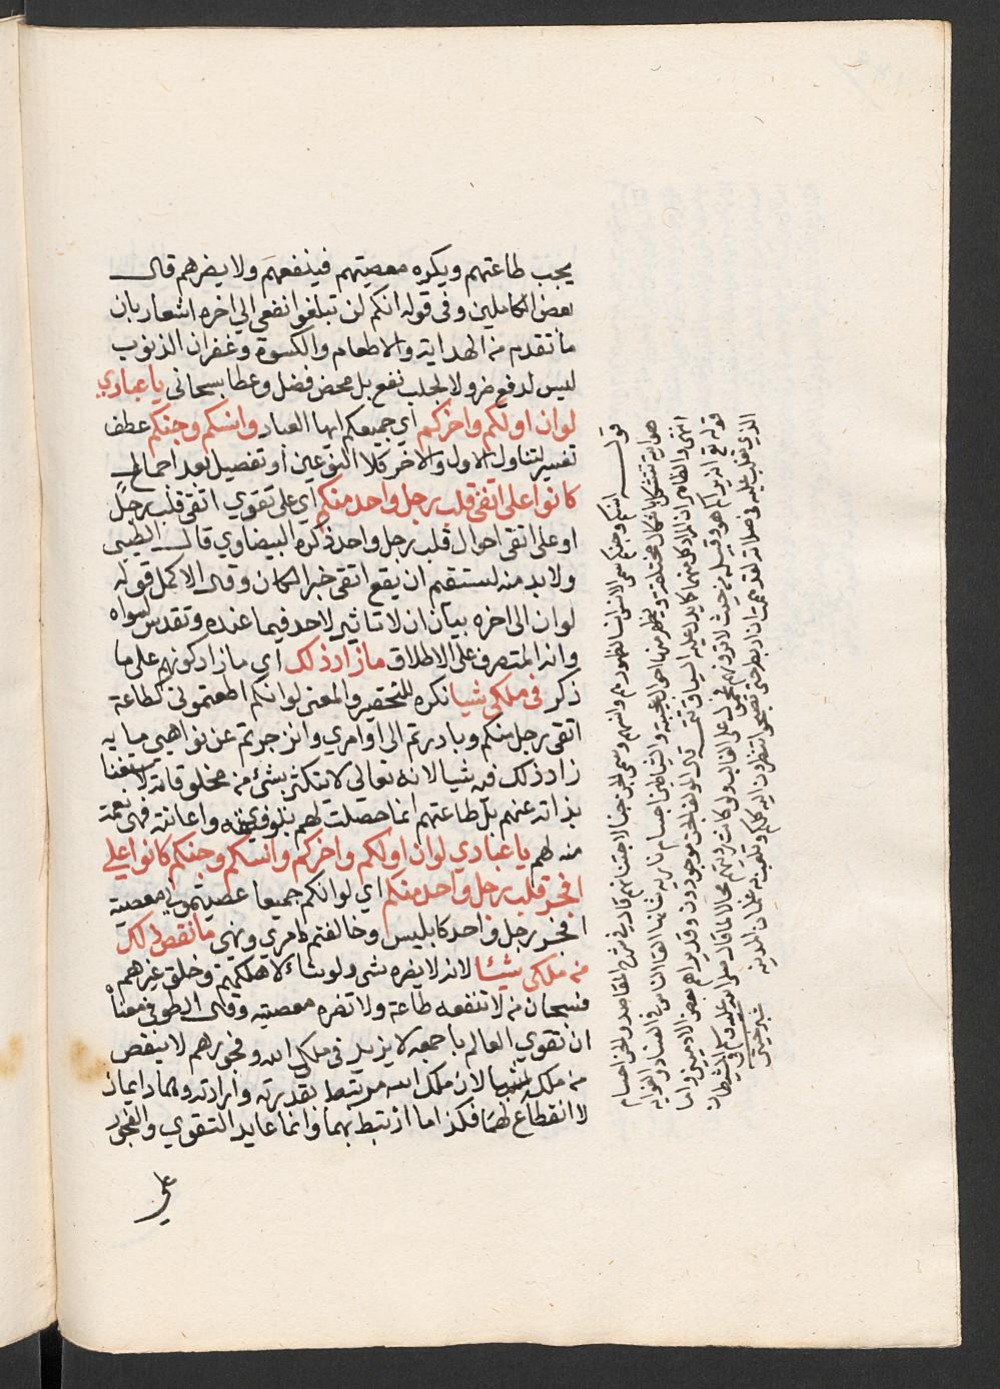 يجب طاعتهم ويكره معصيتهم فينفعهم ولا يضرهم قال
بعض الكاملين وفي قوله انكم لن تبلغوا نفعي الي اخره اشعار بان
ما تقدم من الهداية والاطعام والكسوة وغفران الذنوب
ليس لدفع ضر ولا لجلب نفع بل محض فضل وعطا سبحاني يا عبادي
لو ان اولكم واخركم اي جميعكم ايها العباد وانسكم وجنكم عطف
تفسير لتناول الاول والاخر كلا النوعين او تفصيل بعد اجمال
كانوا على اتقى قلب رجل واحد منكم اي على تقوي اتقى قلب رجل
او على اتقى احوال قلب رجل واحد ذكره البيضاوي قال الطيبي
ولا بد منه ليستقيم ان يقع اتقى خبر الكان وقال الاكمل قوله
لو ان الى اخره بيان ان لا تاثير لاحد فيما عنده وتقدس لسواه
وانه المتصرف على الاطلاق ما زاد ذلك اي ما زاد كونهم على ما
ذكر في ملكي شيا نكره للتحقير والمعنى لو انكم اطعتموني كطاعة
اتقى رجل منكم وبادرتم الى اوامري وانزجرتم عن نواهيي ما
زاد ذلك فيه شيا لانه تعالى لا يتكثر بشئ من مخلوقاته لاستغنا
بذاته عنهم بل طاعتهم انما حصلت لهم بتوفيقه واعانته فهي نعمة
منه لهم يا عبادي لو ان اولكم واخركم وانسكم وجنكم كانوا علي
افجر قلب رجل واحد منكم اي لو انكم جميعا عصيتموني معصية
افجر رجل واحد كابليس وخالفتم امري ونهي ما نقص ذلك
من ملكي شيئا لانه لا يضره شى ولو شاء لاهلكهم وخلق غيرهم
فسبحان من لا تنفعه طاعة ولا تضره معصية وقال الطوفي معناه
ان تقوي العالم باجمعه لا يزيد في ملكي الله وفجورهم لا ينقص
من ملكه شيا لان ملك الله مرتبط بقدرته وارادته وهما دايمان
لا انقطاع لهما فكذا ما ارتبط بهما وانما عايد التقوي والفجور
على
قوله انسكم وجنكم سمي الانس انسا لظهورهم وانسهم وسمي الجن جنا لاجتنانهم قال في شرح المقاصد والجن اجسام
هوائية تتشكل باشكال مختلفة ويظهر منها احوال عجيبة والشياطين اجسام نارية شانها القا الناس في الفساد والغواية
انتهى والظاهر ان المراد كل منهما كما يدل عليه السياق قال المؤلف الجن موجودون وقد يراهم بعض الادميين واما
قوله تع انه يراكم هو وقبيله من حيث لا ترونهم محمول على الغالب ولو كانت رؤيتهم محالا لما قال صلى الله عليه وسلم في الشيطان
الذي تفلت عليه في صلاته لقد هممت ان اربطه حتى تصبحوا تنظرون اليه كلكم وتلعب به غلمان المدينة